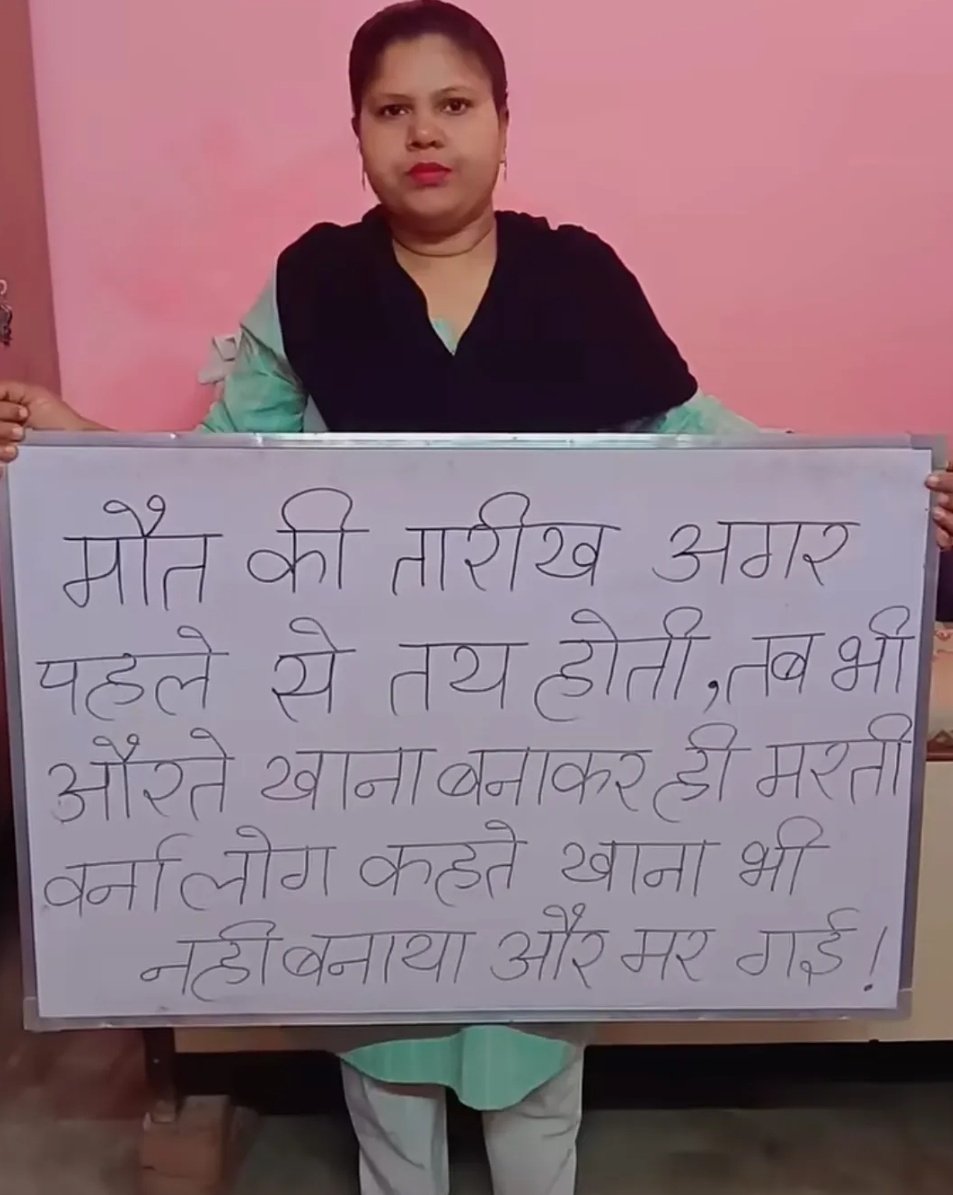 मौत की तारीख अगर
पहले से तय होती,तब भी
औरते खाना बनाकर ही मरती
वर्ना लोग कहते खाना भी
नही बनाया और मर गई!